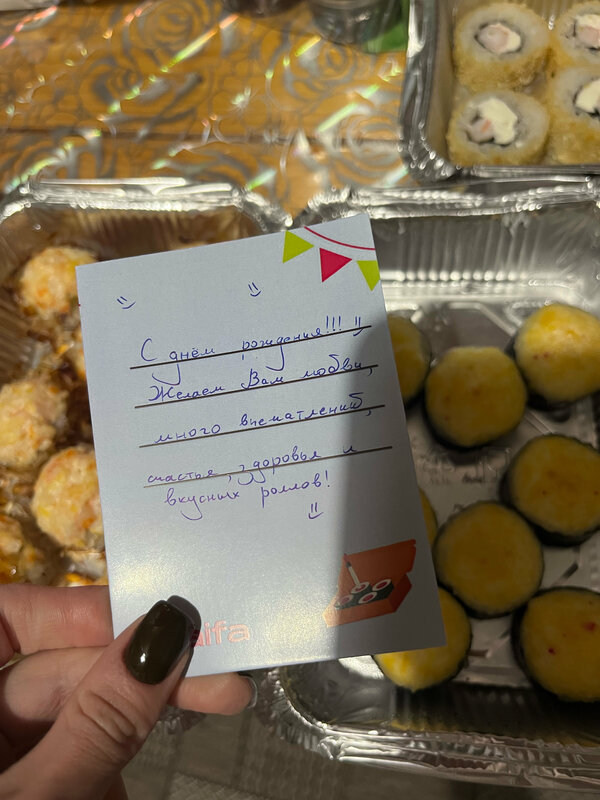 С днём рождения!!!
Желаем Вам любви,
много впечатлений,
счастья, здоровья и
вкусных роллов!